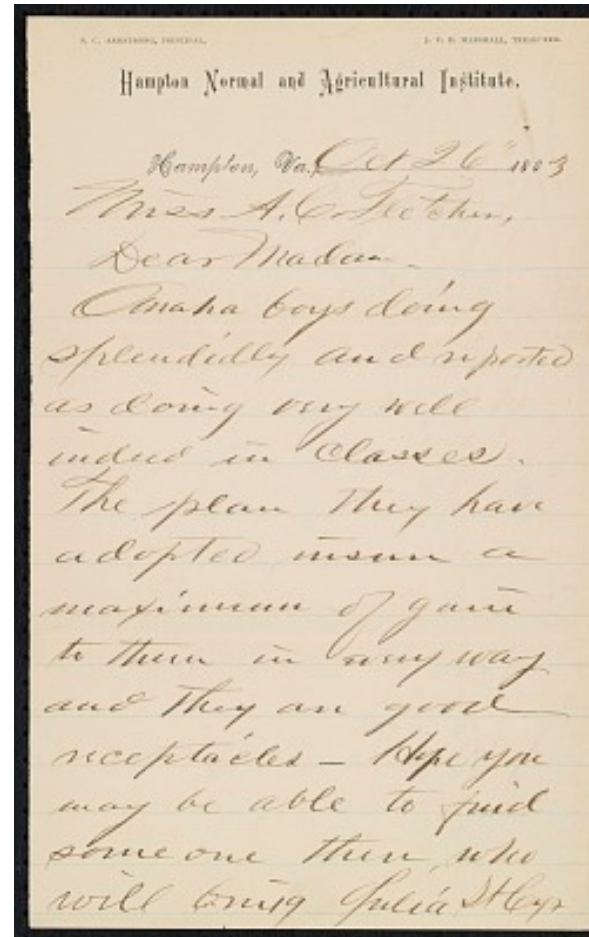 S. C. ARMSTRONG, PRINCIPAL. J. F. B. MARSHALL, TREASURER.
Hampton Normal and Agricultural Institute.
Hampton, Va., Oct 26" 1883
Miss A. C. Fletcher,
Dear Madam.
Omaha boys doing
splendidly and reported
as doing very well
indeed in classes.
The plan they have
adopted insures a
maximum of gain
to them in every way
and they are good
receptacles — Hope you
may be able to find
some one there, who
will bring Julia St Cyr